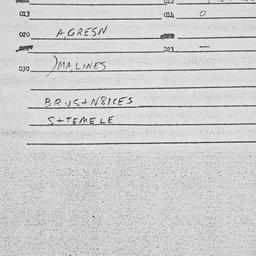 012
013
014 0
020 A,GRESN
023 —
030 )MA,LINES
BRUS+N8ICES
S+TEMELE